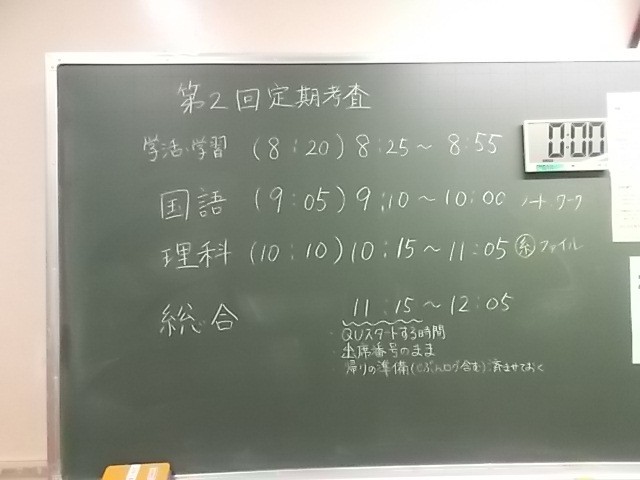 第2回定期考査
学活・学習 (8:20) 8:25～ 8:55
国語 (9:05) 9:10～10:00 ノート、ワーク
理科 (10:10) 10:15～11:05 ファイル
総合 11:15～12:05
QUスタートする時間
出席番号のまま
帰りの準備(ログ含む)済ませておく
0:00